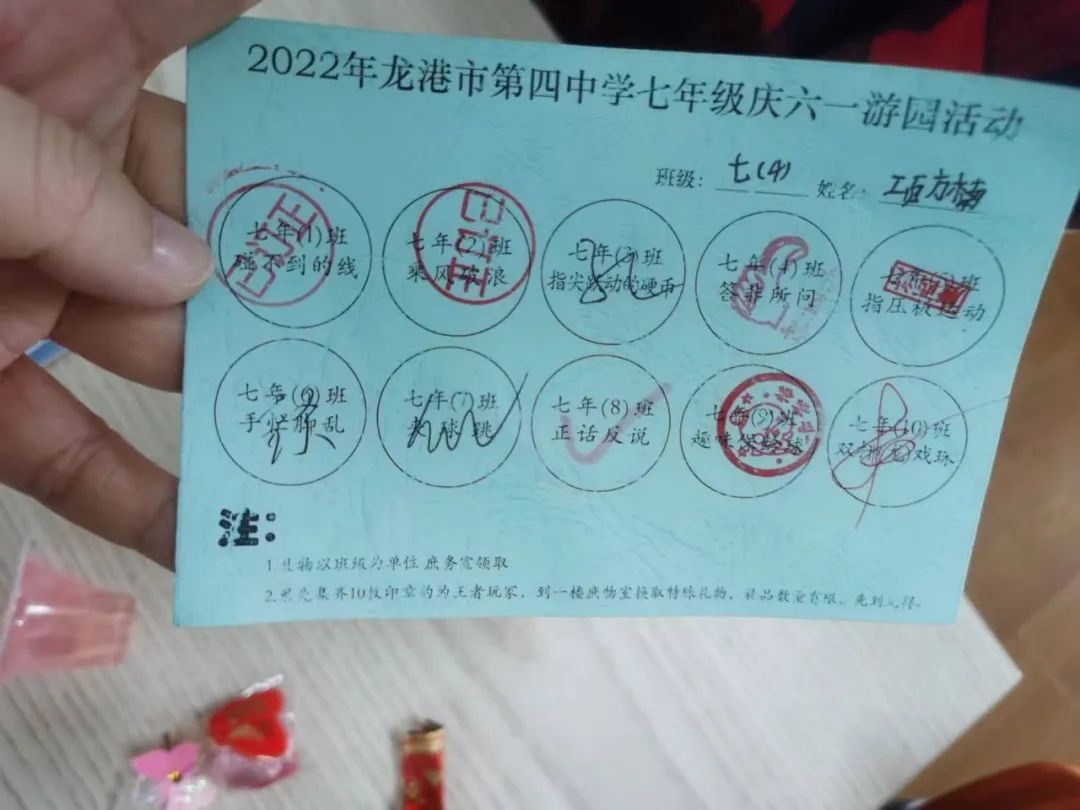 2022年龙港市第四中学七年级庆六一游园活动
班级：七(4) 姓名：
七年(1)班
碰不到的线
七年(2)班
乘风破浪
七年(3)班
指尖跃动的硬币
七年(4)班
答非所问
指压板运动
七年(6)班
手忙脚乱
七年(7)班
七年(8)班
正话反说
七年(9)班
趣味
七年(10)班
双 龙戏珠
注：
1.礼物以班级为单位庶务室领取
2.率先集齐10枚印章的为王者玩家，到一楼庶物室换取特殊礼物，礼品数量有限，先到先得。